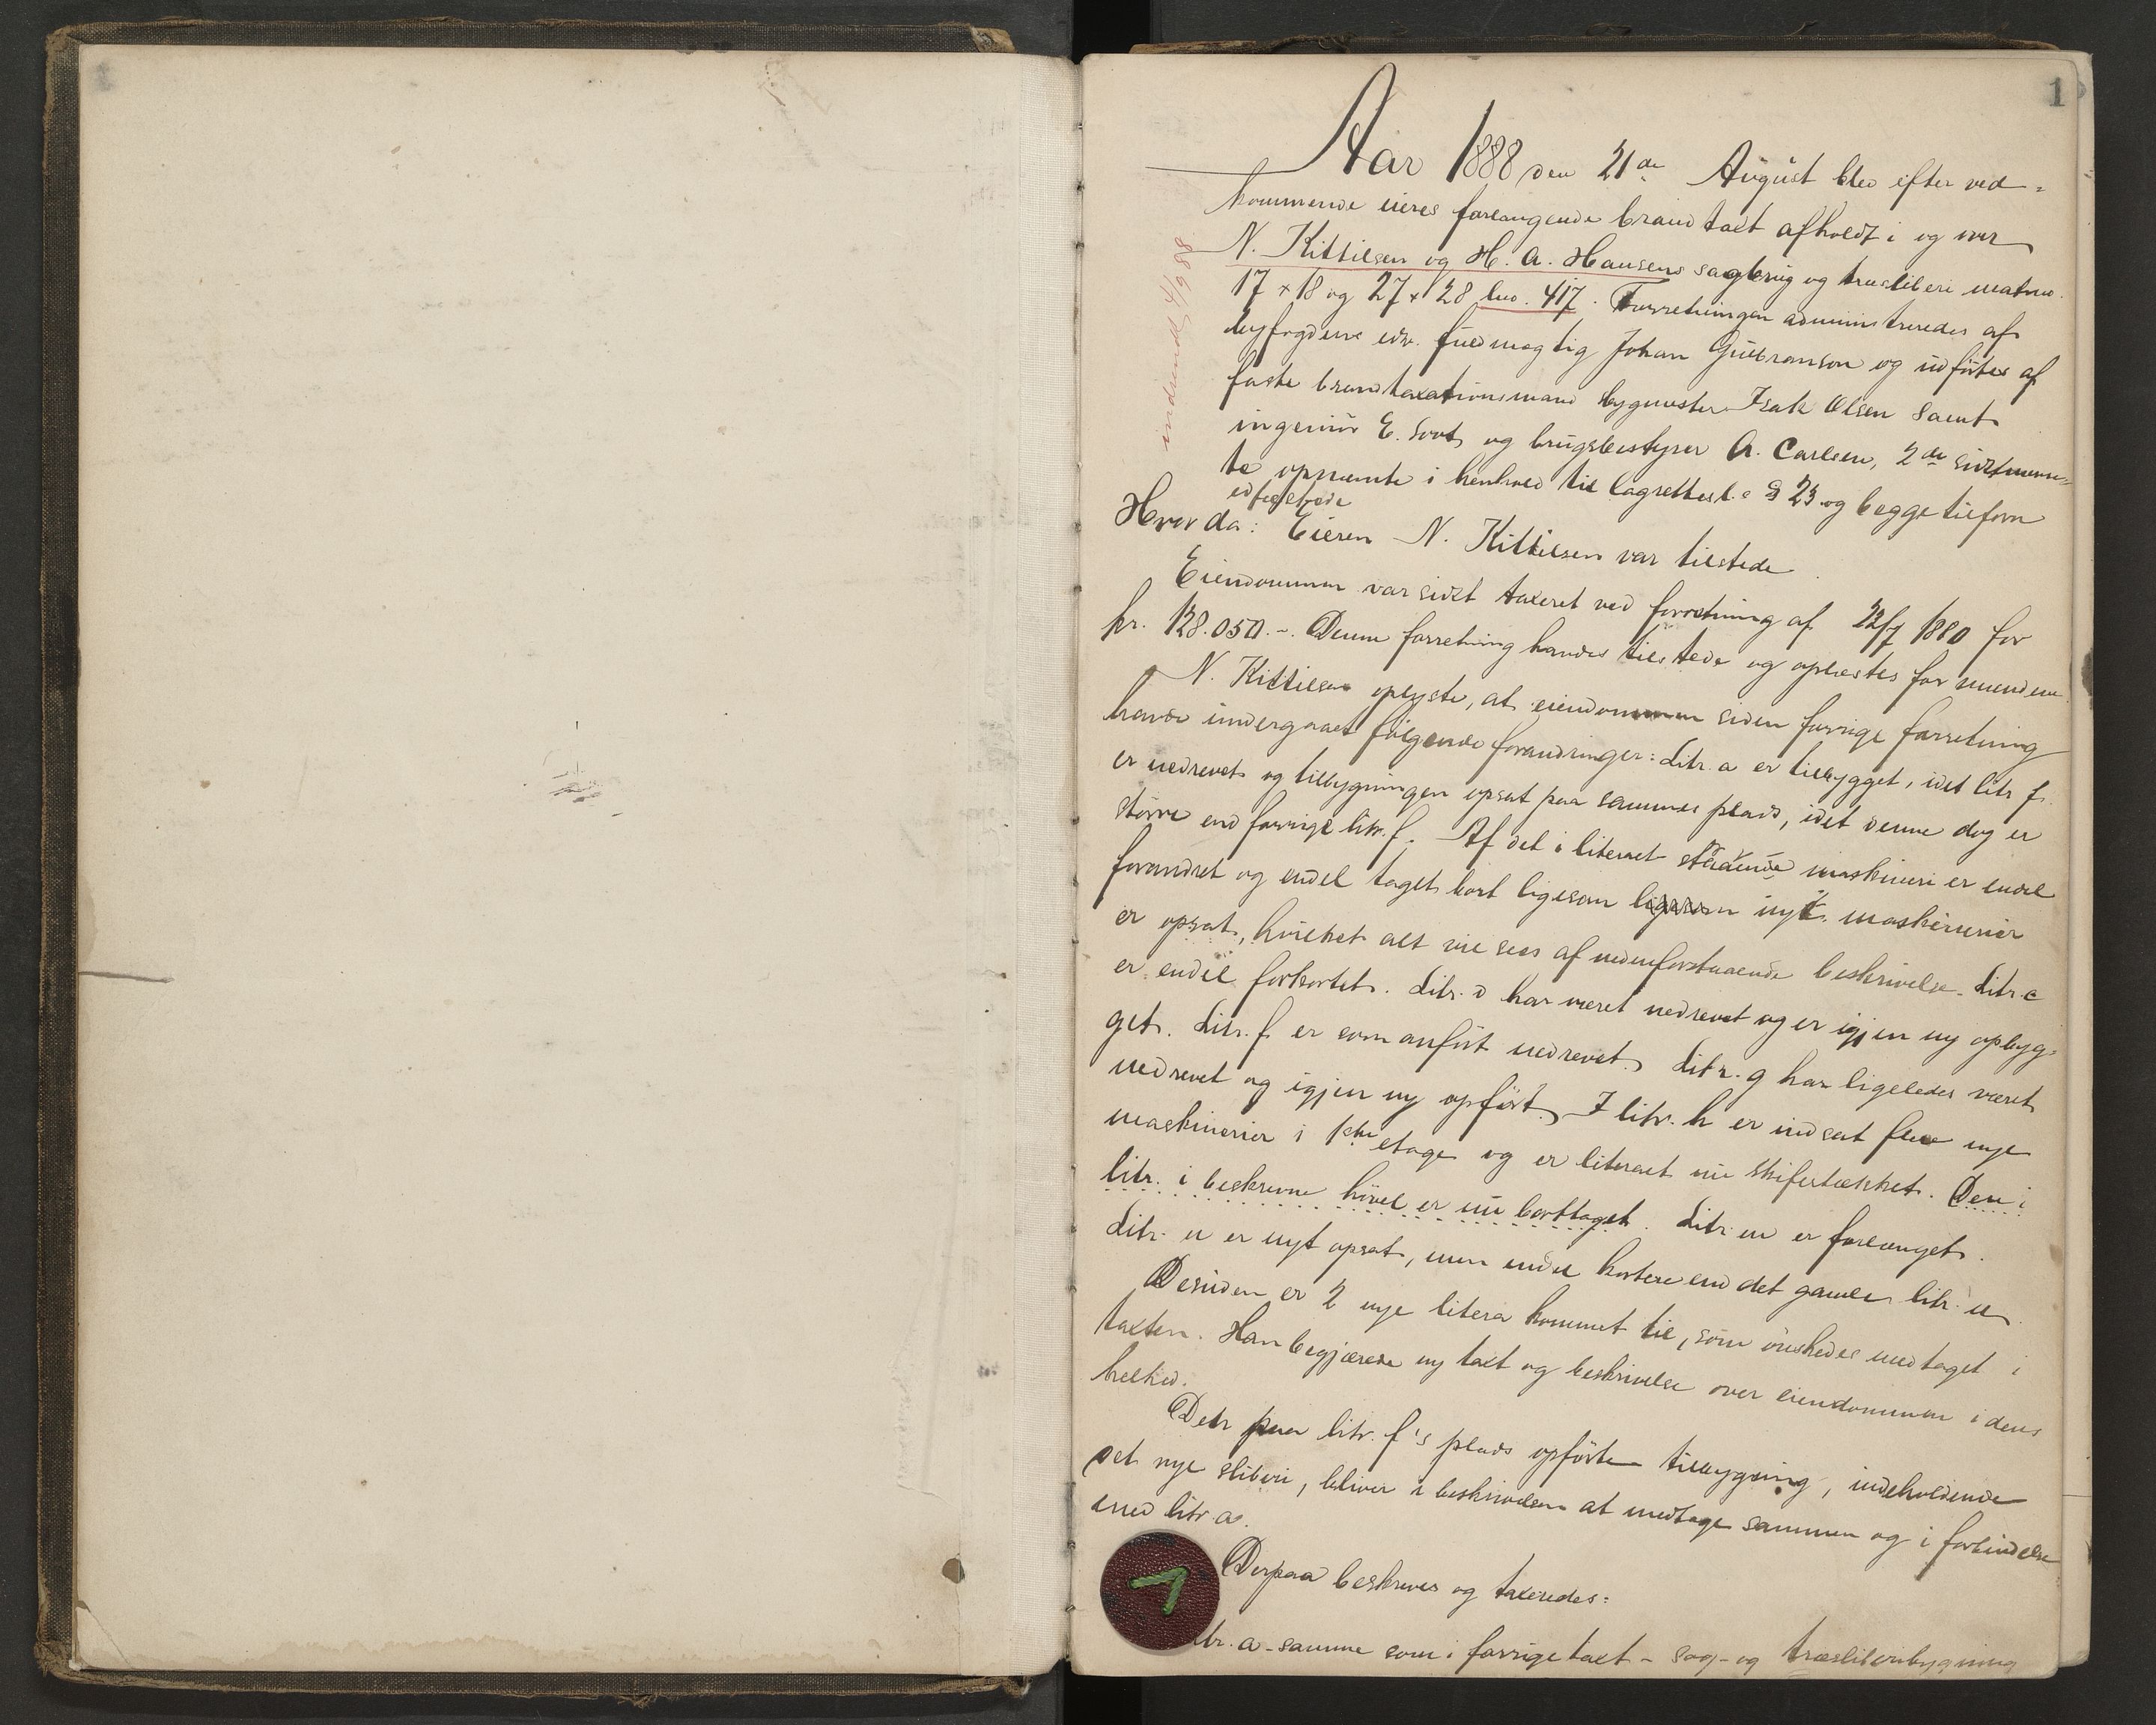 1
Aar 1888 den 21de August blev efter ved-
kommende eieres forlangende brandtaxt afholdt i og over
N. Kittilsen og H. A. Hansens sagbrug og træsliberi matno.
17 + 18 og 27 + 28 lno. 417. Forretningen administreredes af
byfogdens edsv. fuldmægtig Johan Gulbranson og udförtes af
faste brandtaxationsmand bygmester Isak Olsen samt
ingeniör E. Soot og brugsbestyrer A. Carlsen, 2de sidstnævn-
te opnævnte i henhold til lagrettesl. § 23 og begge tilforn
edfæstede
Hvorda: Eieren N. Kittilsen var tilstede
Eiendommen var sidst taxeret ved forretning af 22/7 1880 for
kr. 128.050.-. Denne forretning havdes tilstede og oplæstes for mændene
N. Kittilsen oplyste, at eiendommen siden forrige forretning
havde undergaaet fölgende forandringer: Litr. a er tilbygget, idet litr f.
er nedrevet og tilbygningen opsat paa sammes plads, idet denne dog er
större end forrige litr. f. Af det i literaet staaende maskineri er endel
forandret og endel taget bort ligesom ligesom nyt. maskinerier
er opsat, hvilket alt vil sees af nedenforstaaende beskrivelse. Litr. c
er endel forkortet. Litr. d har været nedrevet og er igjen ny opbyg-
get. Litr. f er som anfört nedrevet. Litr. g har ligeledes været
nedrevet og igjen ny opfört. I litr. h er indsat flere nye
maskinerier i 1ste etage og er literaet nu skifertækket. Den i
litr. i beskrevne hövel er nu borttaget. Litr. m er forlænget.
Litr. n er nyt opsat, men endel kortere end det gamle litr. n
Desuden er 2 nye litera kommet til, som önskedes medtaget i
taxten. Han begjærede ny taxt og beskrivelse over eiendommen i dens
helhed.
Den paa litr. f's plads opförte tilbygning, indeholdende
det nye sliberi, bliver i beskrivelsen at medtage sammen og i forbindelse
med litr. a.
Derpaa beskreves og taxeredes:
Litr. a - samme som i forrige taxt - sag- og træsliberibygning
indsendt 4/9 88